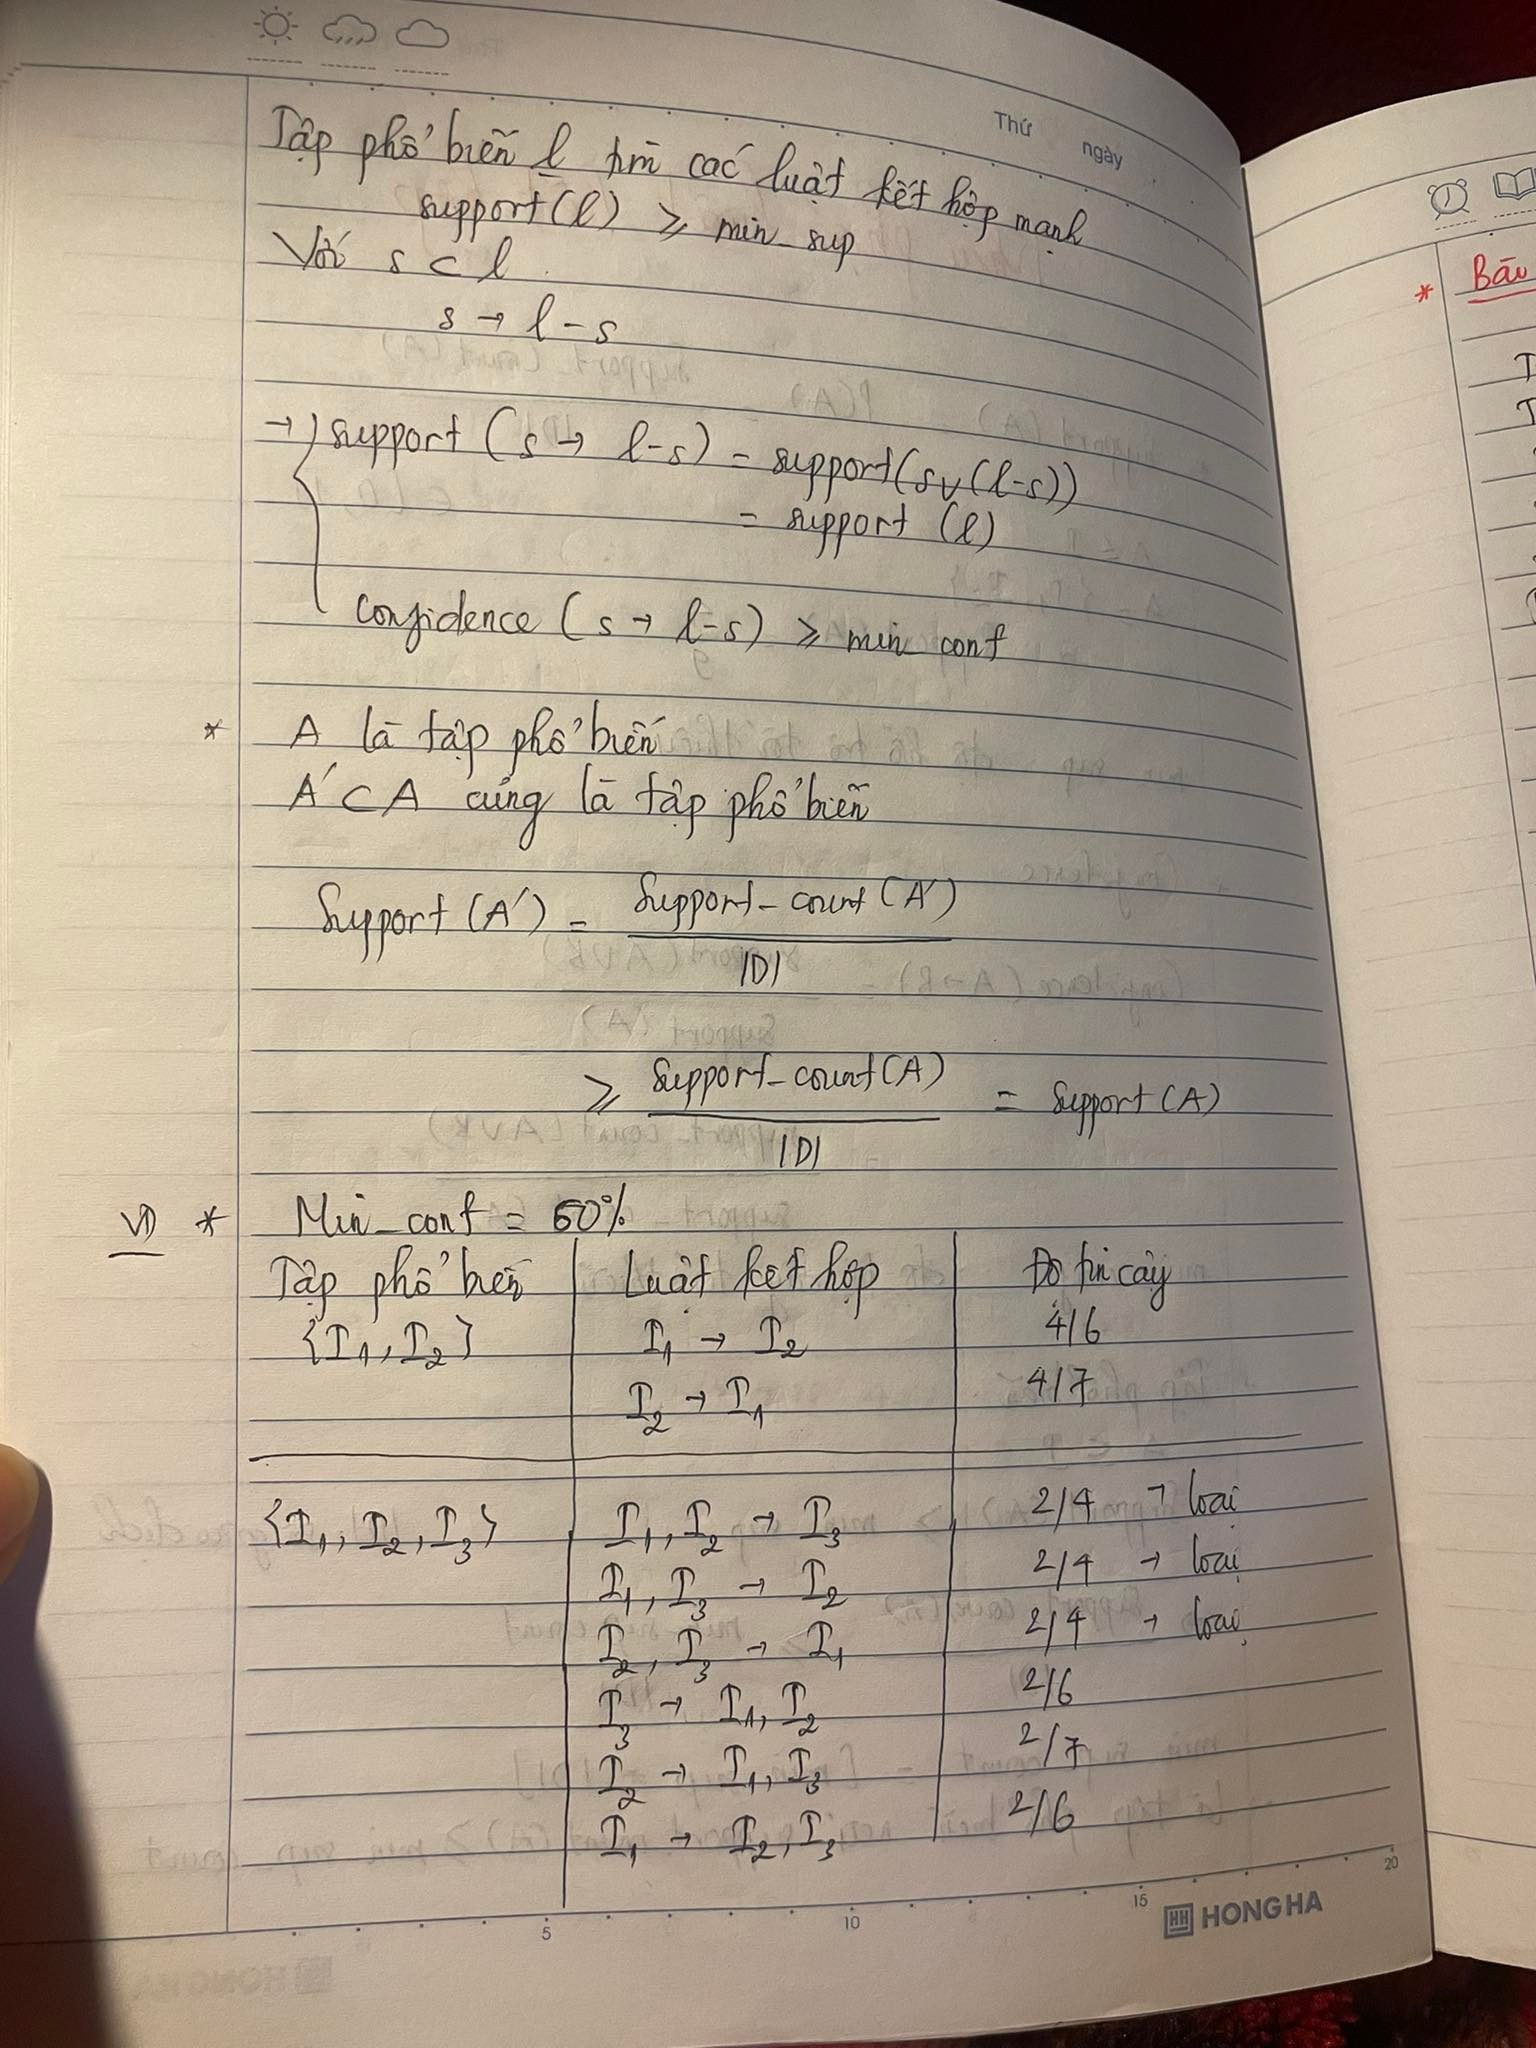 Thứ
ngày
Tập phổ biến l tìm các luật kết hợp mạnh
support(l) ≥ min_sup
Với s ⊂ l
s → l-s
→ support (s → l-s) = support(s∪(l-s))
= support (l)
confidence (s → l-s) ≥ min_conf
* A là tập phổ biến
A' ⊂ A cũng là tập phổ biến
Support (A') = Support_count (A')
|D|
≥ Support_count (A) = Support (A)
|D|
VD * Min_conf = 60%
Tập phổ biến Luật kết hợp Độ tin cậy
{I1, I2} I1 → I2 4/6
I2 → I1 4/7
{I1, I2, I3} I1, I2 → I3 2/4 → loại
I1, I3 → I2 2/4 → loại
I2, I3 → I1 2/4 → loại
I3 → I1, I2 2/6
I2 → I1, I3 2/7
I1 → I2, I3 2/6
5 10 15 20
HONG HA
* Bài